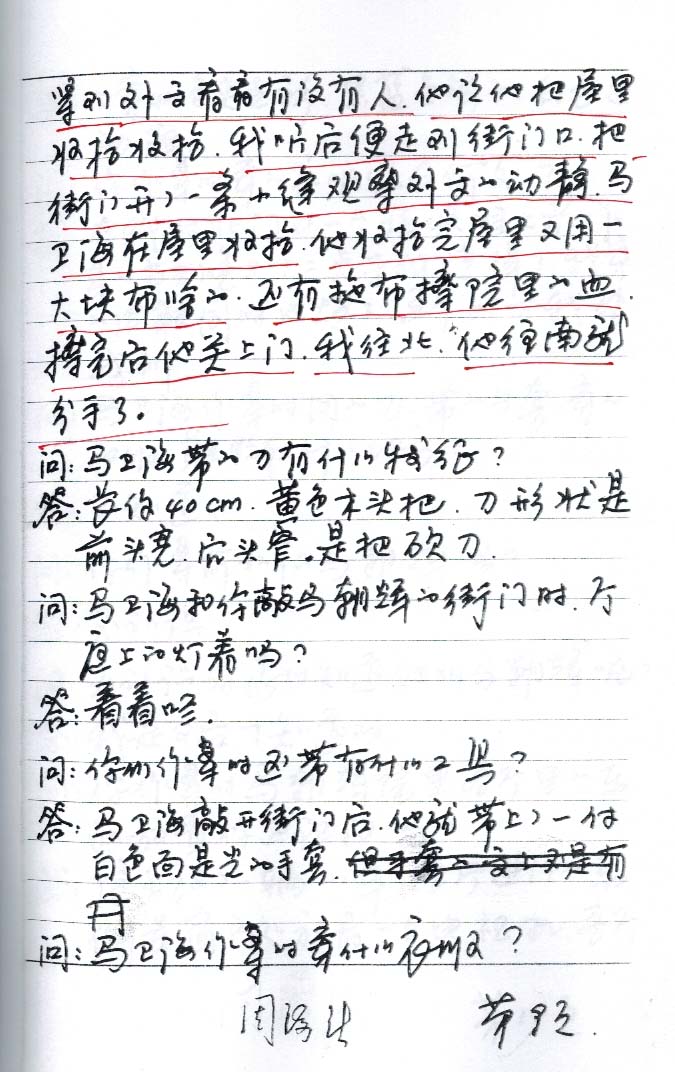 紧到外立看看有没有人.他说他把屋里
收拾收拾.我听后便走到街门口.把
街门开了一条小缝观察外立的动静.马
卫海在屋里收拾.他收拾完屋里又用一
大块布啥的.还有拖布擦院里的血.
擦完后他关上门.我往北.他往南就
分手了。
问:马卫海带的刀有什么特征?
答:长约40cm.黄色木头把.刀形状是
前头宽.后头窄。是把砍刀.
问:马卫海和你敲马朝辉的街门时.厅
庭上的灯着吗?
答:看着咚.
问:你们作案时还带有什么工具?
答:马卫海敲开街门后.他就带上了一付
白色面是光的手套.但手套 立上又是有
问:马卫海作案时穿什么衣服?